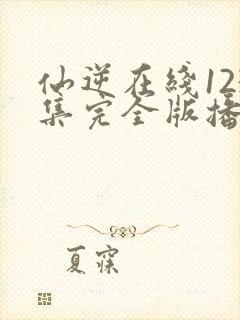 仙逆在綫12
集完全版播
夏寐